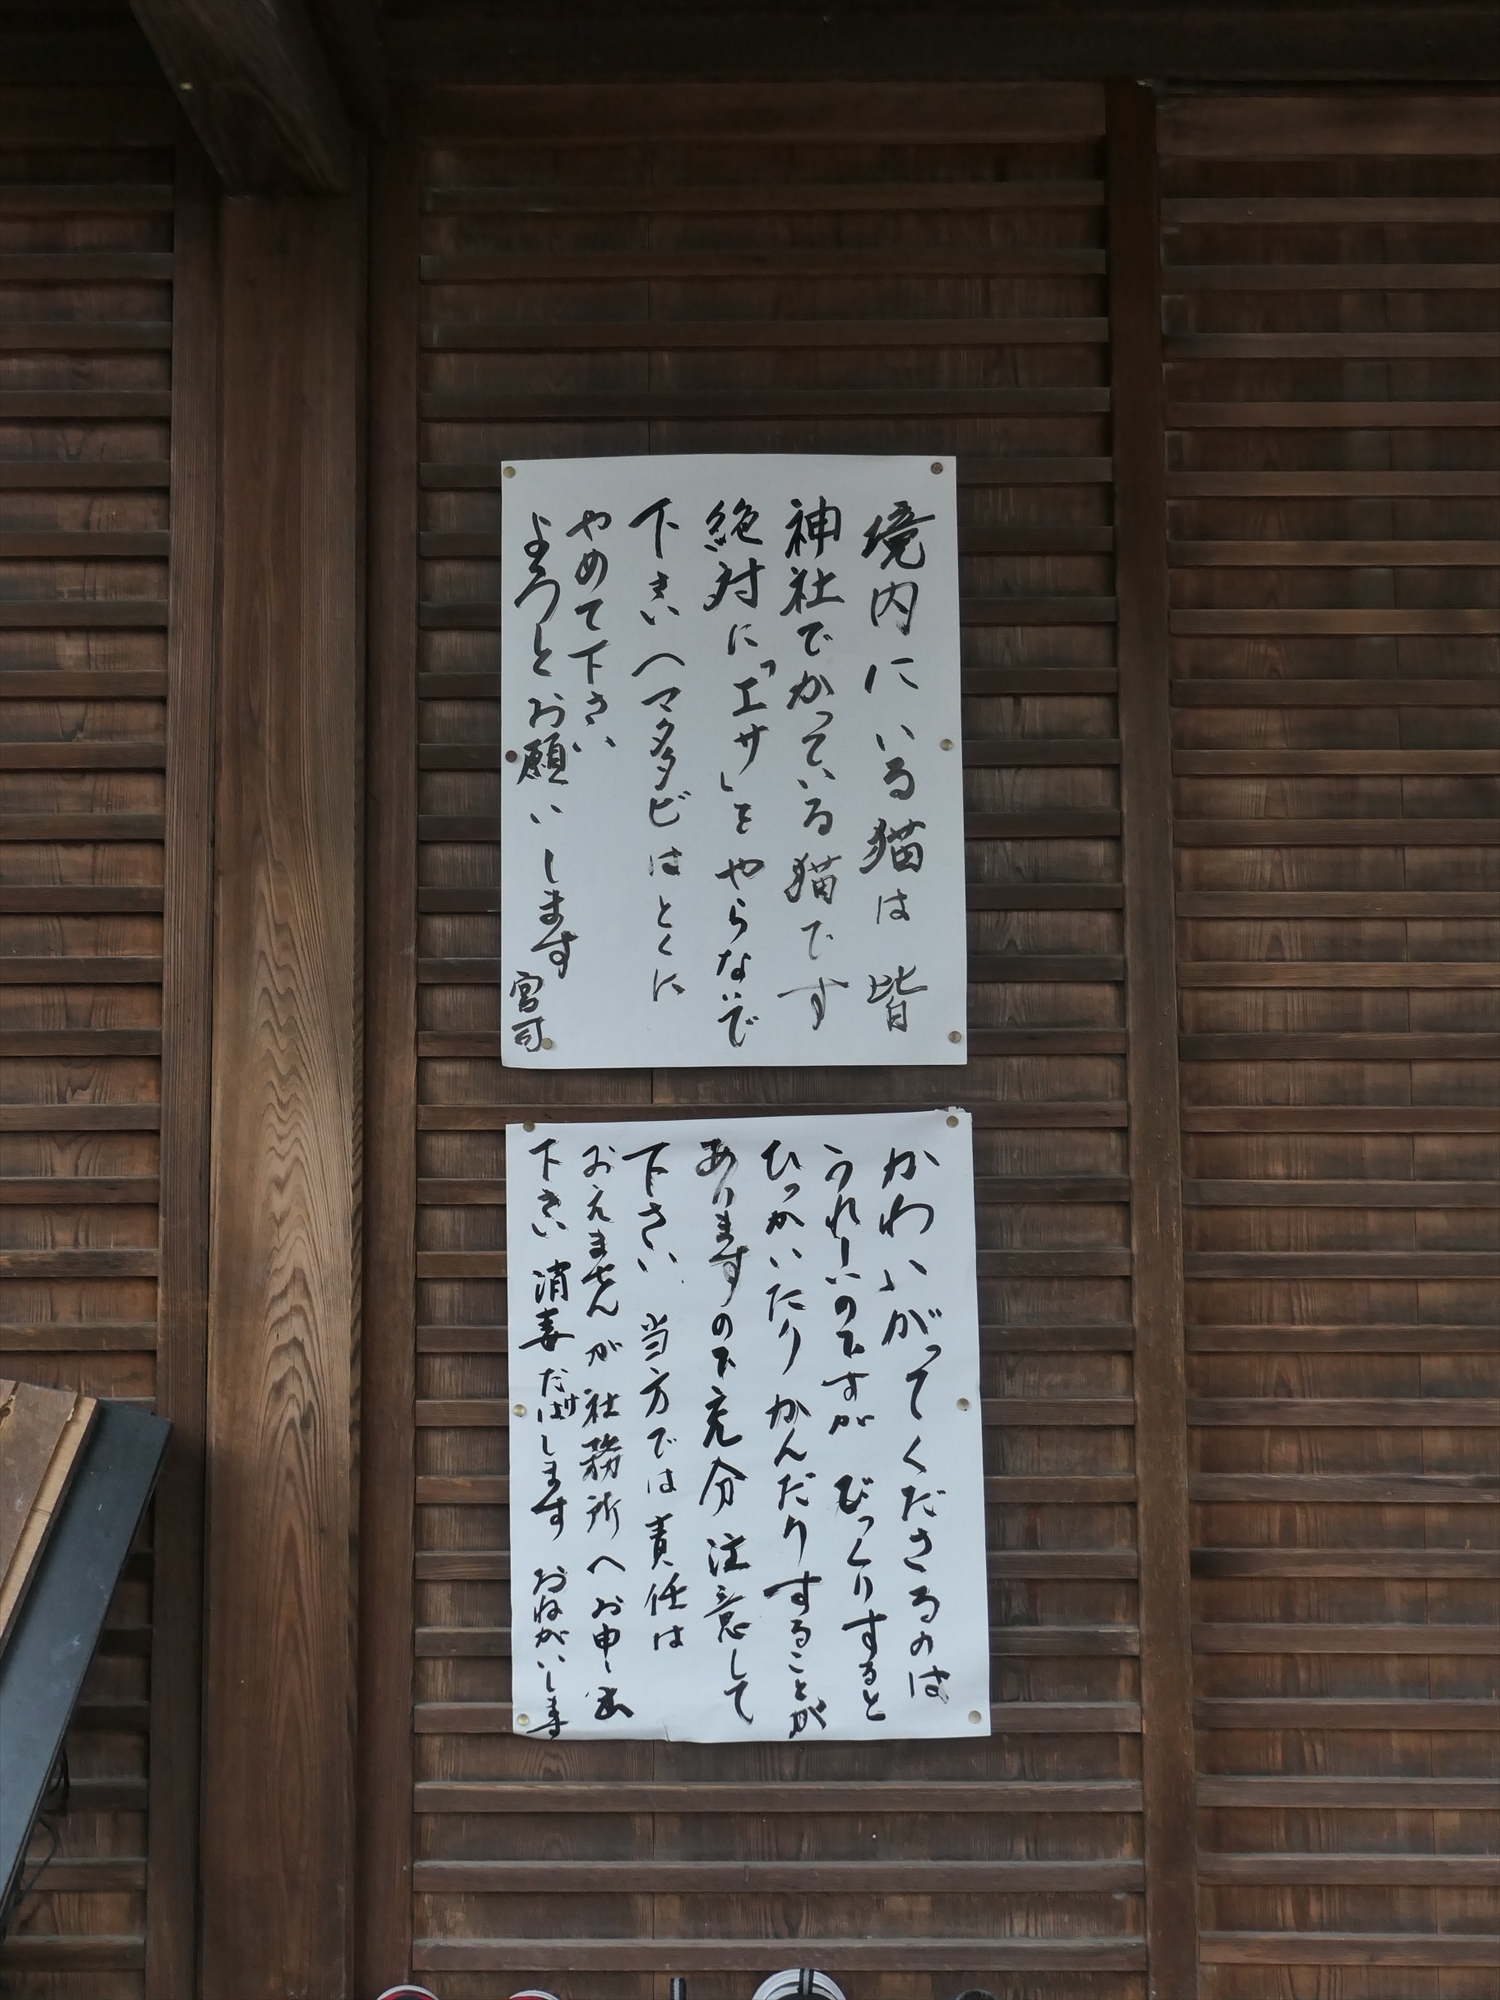 境内にいる猫は皆
神社でかっている猫です
絶対に「エサ」をやらないで
下さい へマタタビはとくに
やめて下さい
よろしとお願いします
宮司
かわいがってくださるのは
うれしいのですが びっくりすると
ひっかいたりかんだりすることが
ありますので充分注意して
下さい 当方では責任は
おえませんが社務所へお申し出
下さい 消毒だけはします おねがいします